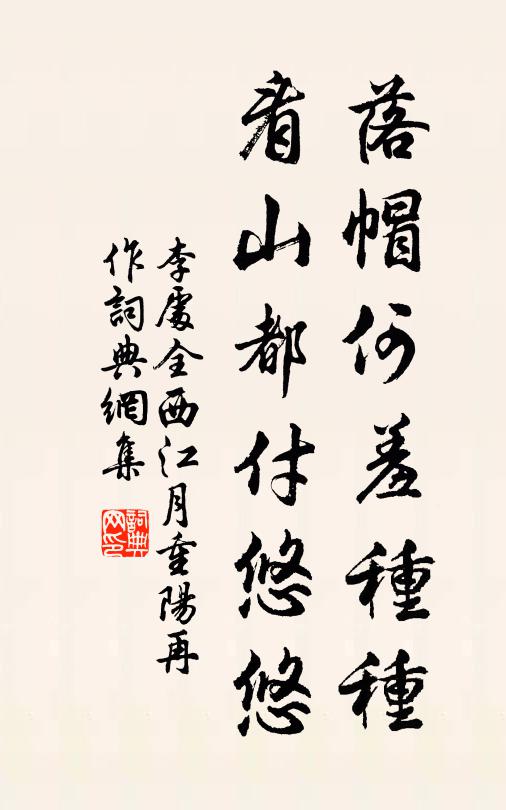 落帽何羞種種
看山都付悠悠
李處全西江月重陽再
作詞典網集
詞典
网印